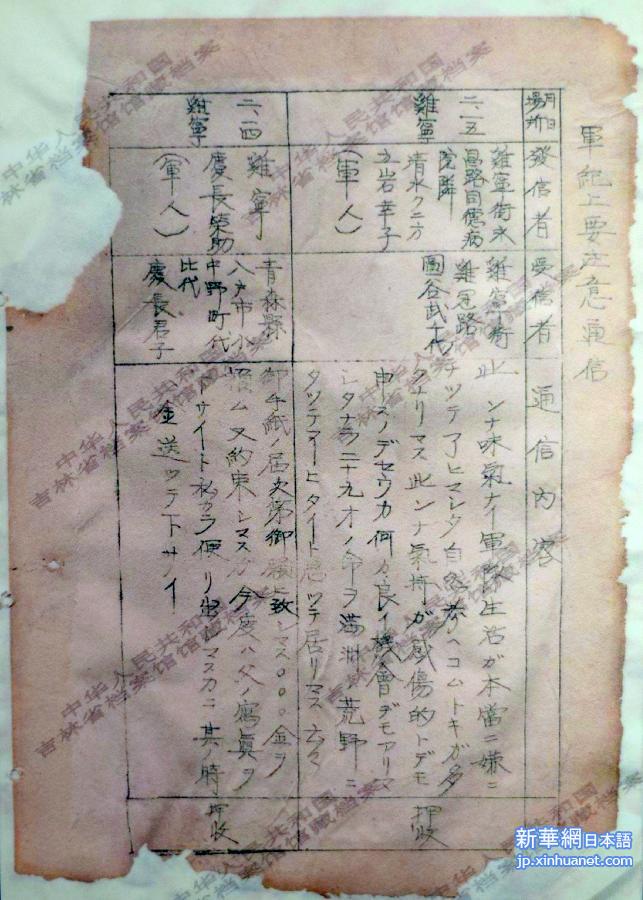 軍紀上要注意通信
月日
場所
發信者
受信者
通信内容
二、五
雞寧
雞寧街永
昌路自儒病
院隣
清水クニ方
立岩幸子
(軍人)
雞寧街
雞冠路
園谷武千代
此ンナ味氣ナイ軍隊生活ガ本當ニ嫌ニ
ナツテ了ヒマシタ自然考ヘコムトキガ多
クナリマス此ンナ氣持ガ感傷的トデモ
申スノデセウカ何カ良イ機會デモアリマ
シタナラ二十九才ノ命ヲ満洲ノ荒野ニ
タツテマヒタイト思ツテ居リマス云々
押收
二、四
雞寧
雞寧
慶長榮助
(軍人)
青森縣
八戸市小
中野町代
比代
慶長君子
御手紙ノ届次第御願ヒ致シマス〇〇〇金ヲ
頼ム又約束シマスガ今度ハ父ノ寫眞ヲ
下サイト私カラ便リ出シマスカラ其ノ時
金送ツテ下サイ
押收
中华人民共和国
吉林省档案馆馆藏档案
新華網日本語
jp.xinhuanet.com